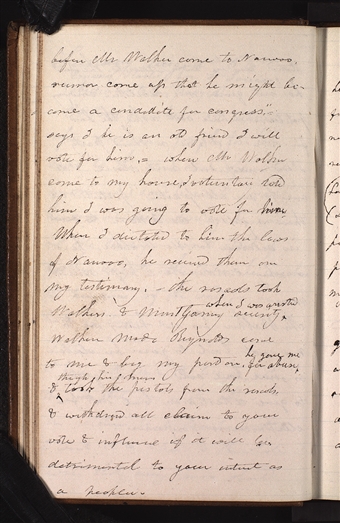 before Mr Walker come to Nauvoo,
rumor come up that he might be-
come a candidate for congress,
says I he is an old friend I will
vote for him. = when Mr Walker
come to my house, I voluntari told
him I was going to vote for him
When I dictated to him the laws
of Nauvoo, he received them on
my testimony. - the rascals took
when I was arrested
Walkers & Montgomery security
Walker made Reynolds come
to me & beg my pardon, he gave me
for abuse,
& took the pistols from the rascals
& withdraw all claim to your
vote & influence if it will be
detrimental to your intent as
a people.